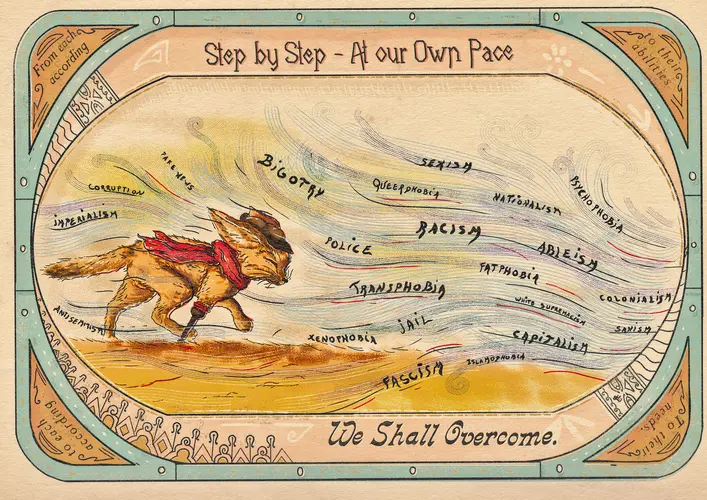 Step by Step - At our Own Pace
From each
according
to their
abilities
FAKE NEWS
BIGOTRY
SEXISM
CORRUPTION
QUEERPHOBIA
NATIONALISM
PSYCHOPHOBIA
IMPERIALISM
RACISM
POLICE
ABLEISM
FATPHOBIA
TRANSPHOBIA
COLONIALISM
WHITE SUPREMACISM
ANTISEMITISM
JAIL
SANISM
XENOPHOBIA
CAPITALISM
ISLAMOPHOBIA
FASCISM
to each
according
To their
needs.
We Shall Overcome.